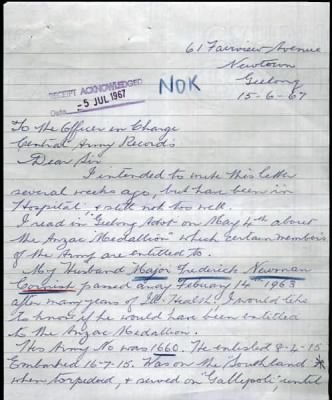 61 Fairview Avenue
Newtown
Geelong
15-6-67
RECEIPT ACKNOWLEDGED
Date - 5 JUL 1967
NOK
To the Officer in Charge
Central Army Records
Dear Sir
I intended to write this letter
several weeks ago, but have been in
Hospital & still not too well.
I read in "Geelong Advt on May 4th about
the Anzac Medallion" which certain members
of the Army are entitled to.
My Husband Major Frederick Newman
Cornish passed away Febuary 14th 1963
after many years of Ill Health. I would like
to know if he would have been entitled
to the Anzac Medallion.
His Army No was 1660. He enlisted 8-2-15
Embarked 16-7-15. Was on the "Southland
when torpedoed, & served on "Gallepoli", until